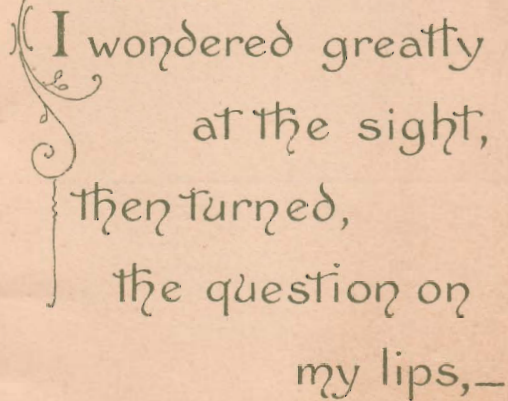 I wondered greatly
at the sight,
then turned,
the question on
my lips,—